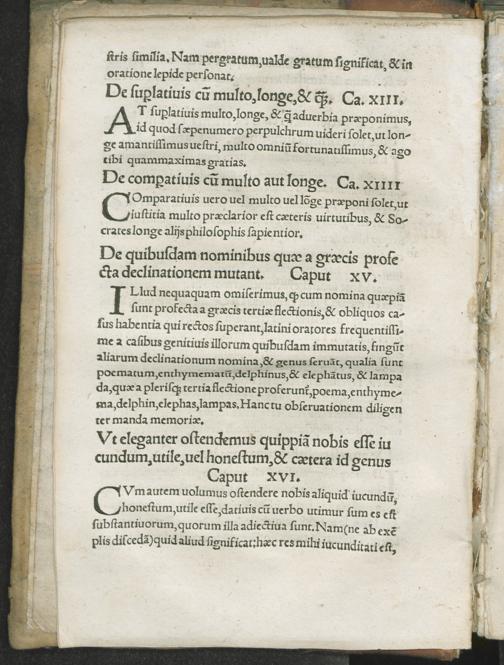 stris similia. Nam pergratum, ualde gratum significat, & in
oratione lepide personat.
De suplatiuis cũ multo, longe, & q̃. Ca. XIII.
AT suplatiuis multo, longe, & q̃ aduerbia præponimus,
id quod sæpenumero perpulchrum uideri solet, ut lon-
ge amantissimus uestri, multo omniũ fortunatissimus, & ago
tibi quammaximas gratias.
De compatiuis cũ multo aut longe. Ca. XIIII
COmparatiuis uero uel multo uel lõge præponi solet, ut
iustitia multo præclarior est cæteris uirtutibus, & So-
crates longe alijs philosophis sapientior.
De quibusdam nominibus quæ a græcis profe
cta declinationem mutant. Caput XV.
ILlud nequaquam omiserimus, ꝙ cum nomina quæpiã
sunt profecta a græcis tertiæ flectionis, & obliquos ca-
sus habentia qui rectos superant, latini oratores frequentissi-
me a casibus genitiuis illorum quibusdam immutatis, fingũt
aliarum declinationum nomina, & genus seruãt, qualia sunt
poematum, enthymematũ, delphinus, & elephãtus, & lampa
da, quæ a plerisq; tertia flectione proferunt̃, poema, enthyme-
ma, delphin, elephas, lampas. Hanc tu obseruationem diligen
ter manda memoriæ.
Vt eleganter ostendemus quippiã nobis esse iu
cundum, utile, uel honestum, & cætera id genus
Caput XVI.
CVm autem uolumus ostendere nobis aliquid iucundũ,
honestum, utile esse, datiuis cũ uerbo utimur sum es est
substantiuorum, quorum illa adiectiua sunt. Nam (ne ab exẽ
plis discedã) quid aliud significat; hæc res mihi iucunditati est,